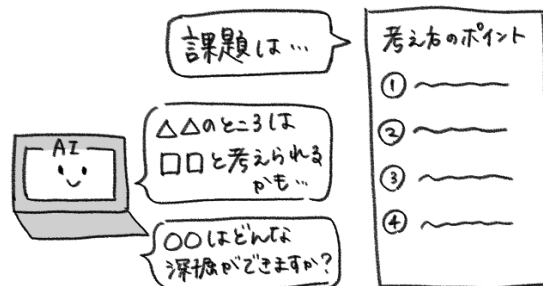 課題は…
考え方のポイント
①
②
③
④
AI
△△のところは
□□と考えられる
かも…
○○はどんな
深掘ができますか？